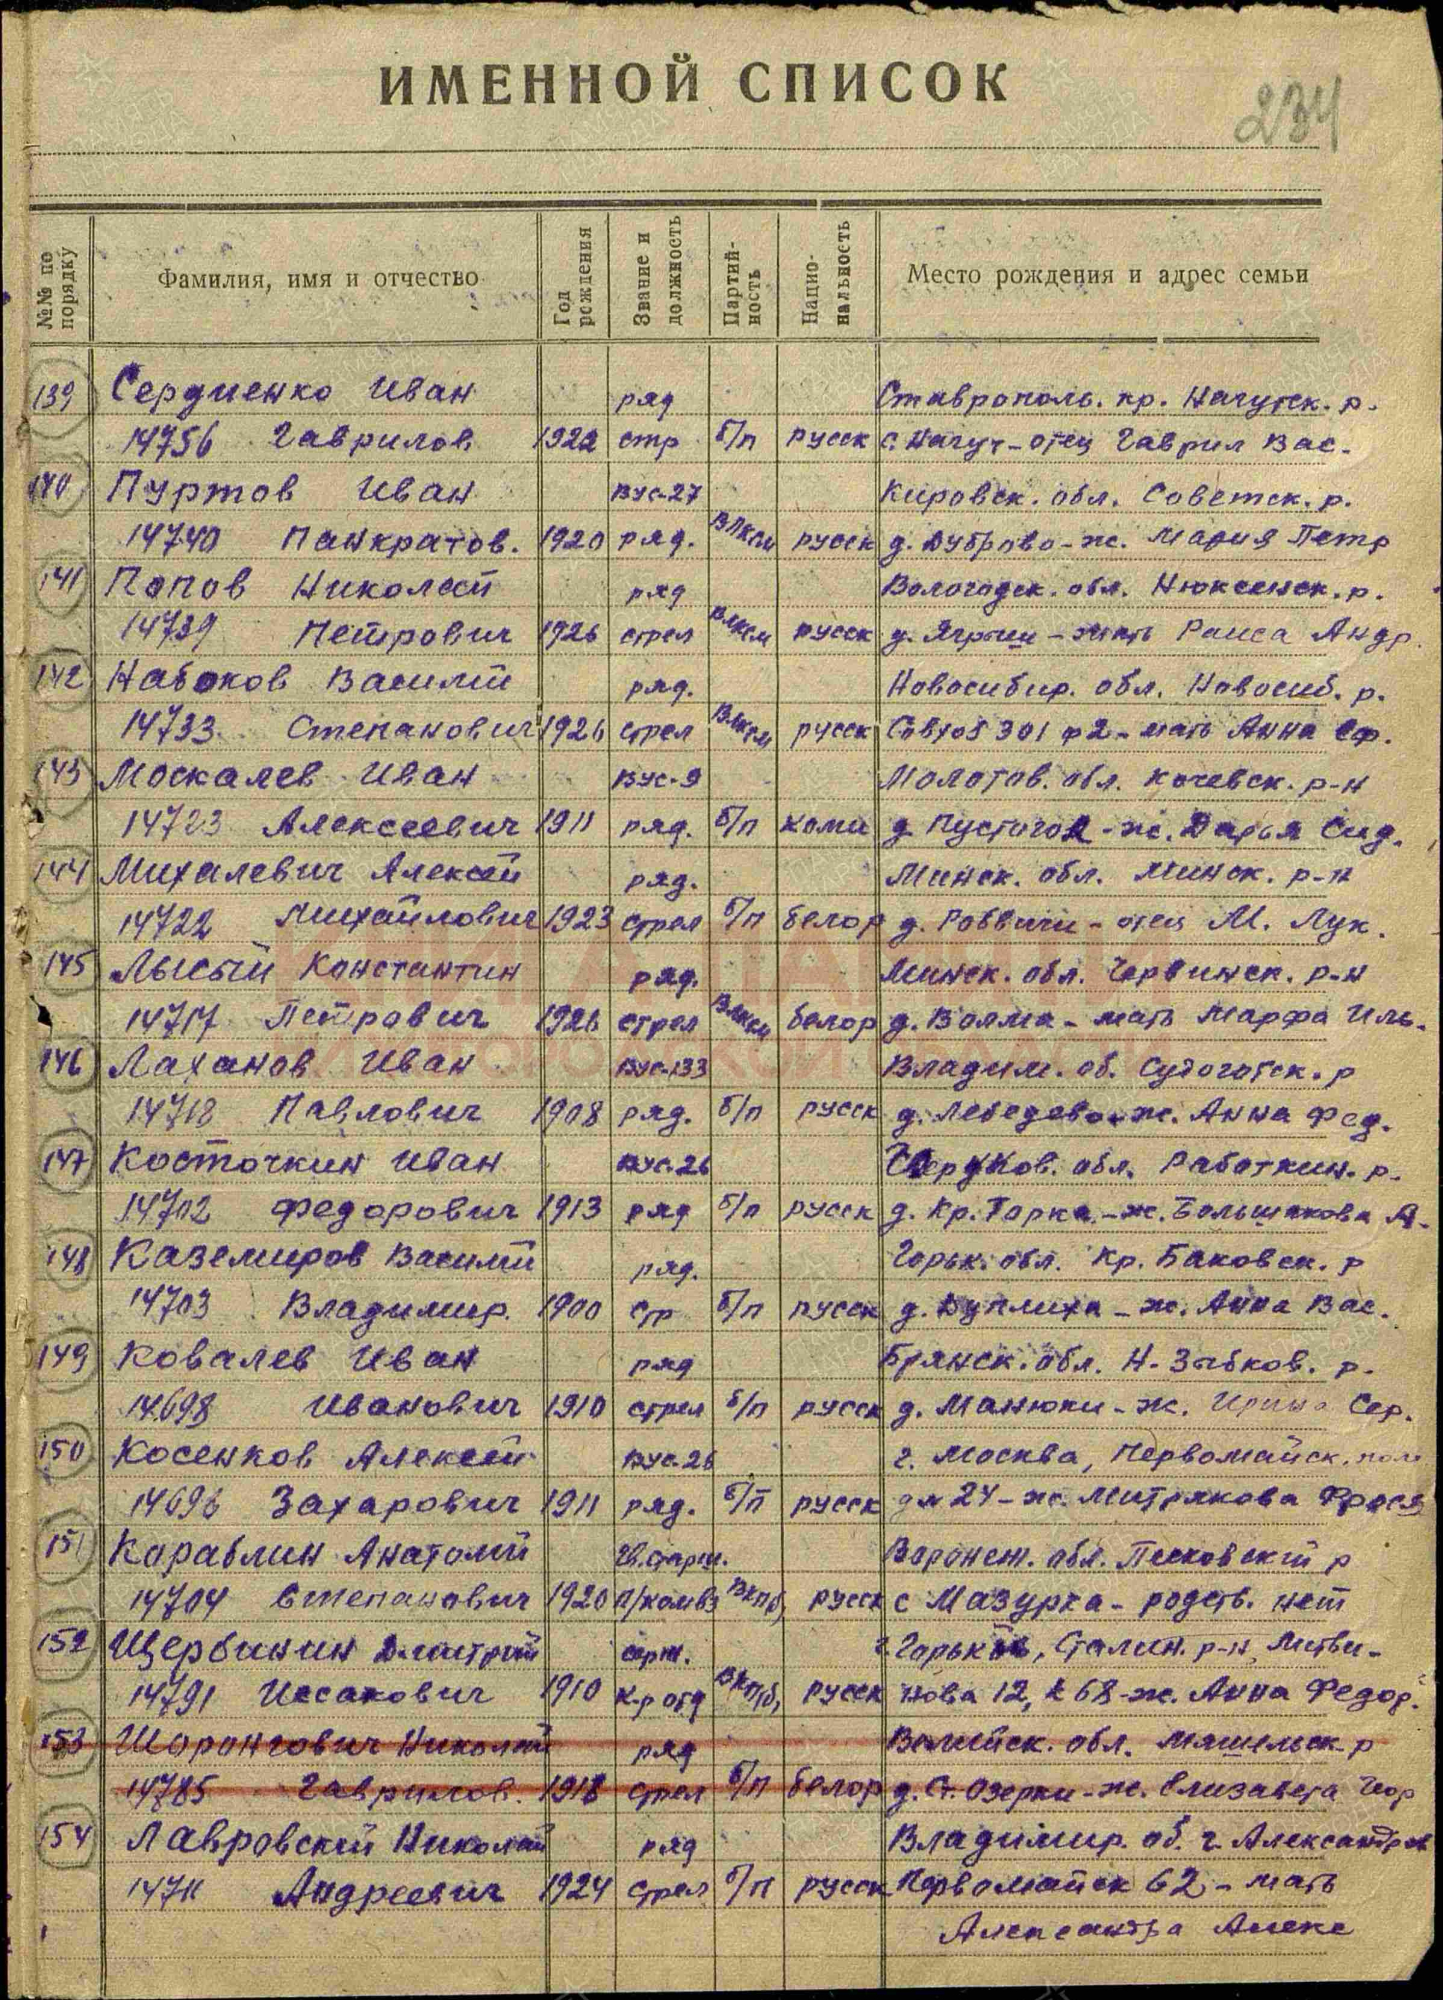 ИМЕННОЙ СПИСОК
234
№№ по порядку
Фамилия, имя и отчество
Год рождения
Звание и должность
Партий-ность
Нацио-нальность
Место рождения и адрес семьи
139 Сердиенко Иван ряд Ставрополь. кр. Нагутск. р.
14756 Гаврилов. 1922 стр б/п русск с. Нагут - отец Гаврил Вас.
140 Пуртов Иван ВУС-27 Кировск. обл. Советск. р.
14740 Панкратов. 1920 ряд. ВЛКСМ русск д. Дуброво - ж. Мария Петр
141 Попов Николай ряд Вологодск. обл. Нюксенск. р.
14739 Петрович 1926 стрел ВЛКСМ русск д. - мать Раиса Андр.
142 Набоков Василий ряд. Новосибир. обл. Новосиб. р.
14733 Степанович 1926 стрел ВЛКСМ русск Совхоз 301 ф2 - мать Анна Еф.
143 Москалев Иван ВУС-9 Молотов. обл. Кочевск. р-н
14723 Алексеевич 1911 ряд. б/п коми д - ж. Дарья Сид.
144 Михалевич Алексей ряд. Минск. обл. Минск. р-н
14722 Михайлович 1923 стрел б/п белор д. - отец М. Лук.
145 Лысый Константин ряд. Минск. обл. Червинск. р-н
14717 Петрович 1926 стрел ВЛКСМ белор д. Волма - мать Марфа Иль.
146 Лаханов Иван ВУС-133 Владим. об. Судогодск. р
14718 Павлович 1908 ряд. б/п русск д. Лебедево - ж. Анна Фед.
147 Косточкин Иван ВУС-26 обл. Работкин. р.
14702 Федорович 1913 ряд б/п русск д. Кр. Горка - ж. Большакова А.
148 Каземиров Василий ряд. Горьк. обл. Кр. Баковск. р
14703 Владимир. 1900 стр б/п русск д. Дуплиха - ж. Анна Вас.
149 Ковалев Иван ряд Брянск. обл. Н-Зыбков. р.
14698 Иванович 1910 стрел б/п русск д. Манюки - ж. Ирина Сер.
150 Косенков Алексей ВУС-26 г. Москва, Первомайск.
14696 Захарович 1911 ряд. б/п русск дм 24 - ж. Митрякова Фрося
151 Караблин Анатолий Гв. старш. Воронеж. обл. Песковский р
14704 Степанович 1920 п/комвз ВКПб, русск с Мазурка - родств. нет
152 Щербинин Дмитрий серж. г. Горький, Сталин. р-н, Литви-
14791 Исакович 1910 к-р отд ВКПб, русск нова 12, к 68 - ж. Анна Федор.
153 Шорангович Николай ряд Вилейск. обл. Мядельск. р
14785 Гаврилов. 1918 стрел б/п белор д. Ст. Озерки - ж. Елизавета Геор
154 Лавровский Николай ряд Владимир. об. г. Александров
14711 Андреевич 1924 стрел б/п русск Первомайск 62 - мать
Александра Алекс
КНИГА ПАМЯТИ
НИЖЕГОРОДСКОЙ ОБЛАСТИ